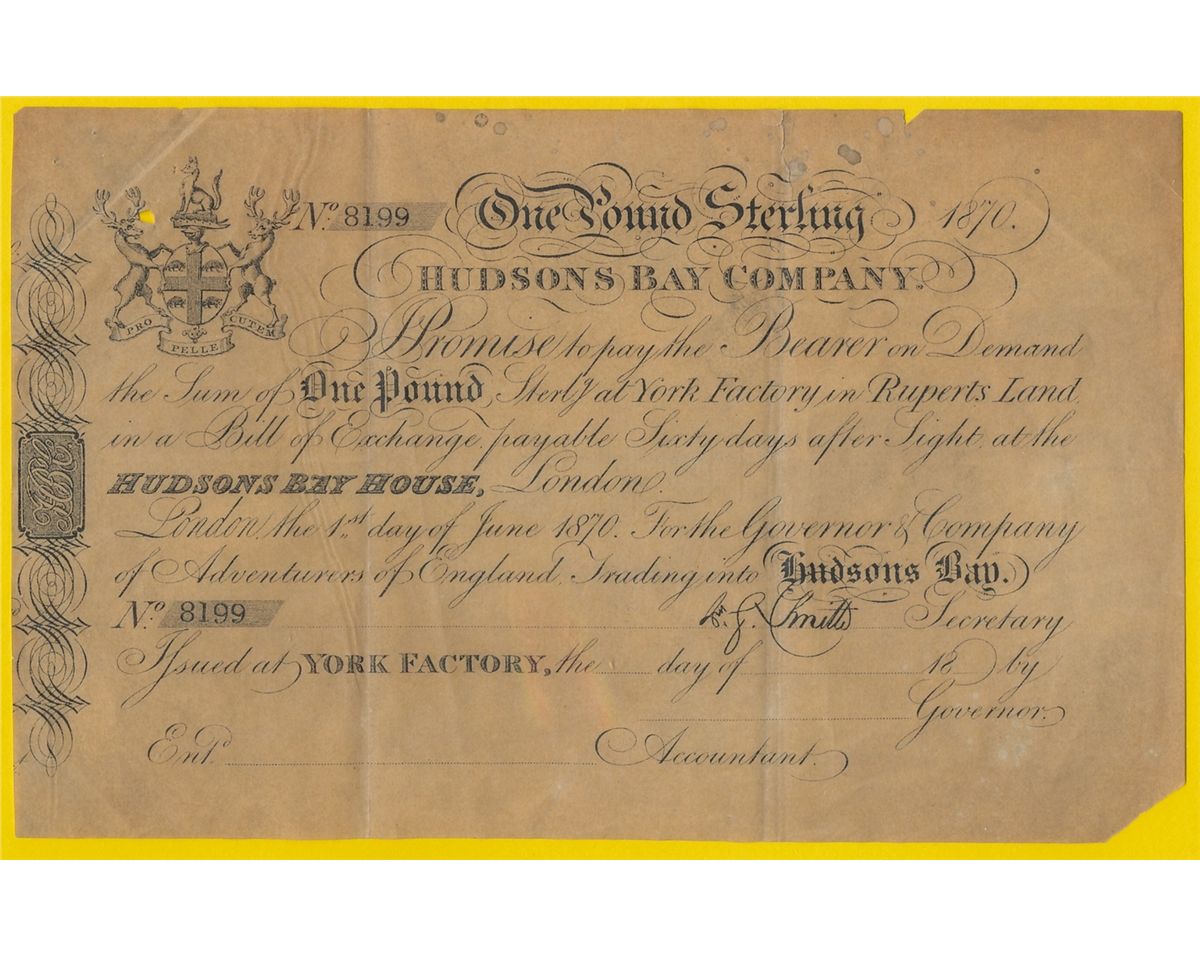 No. 8199 One Pound Sterling 1870.
HUDSONS BAY COMPANY.
PRO PELLE CUTEM
I Promise to pay the Bearer on Demand
the Sum of One Pound Sterlg at York Factory in Ruperts Land
in a Bill of Exchange payable Sixty days after Sight at the
HUDSONS BAY HOUSE, London.
HBC
London, the 1st day of June 1870. For the Governor & Company
of Adventurers of England, Trading into Hudsons Bay.
No. 8199 W. G. Smith Secretary
Issued at YORK FACTORY, the day of 18 by
Governor.
Entd. Accountant.